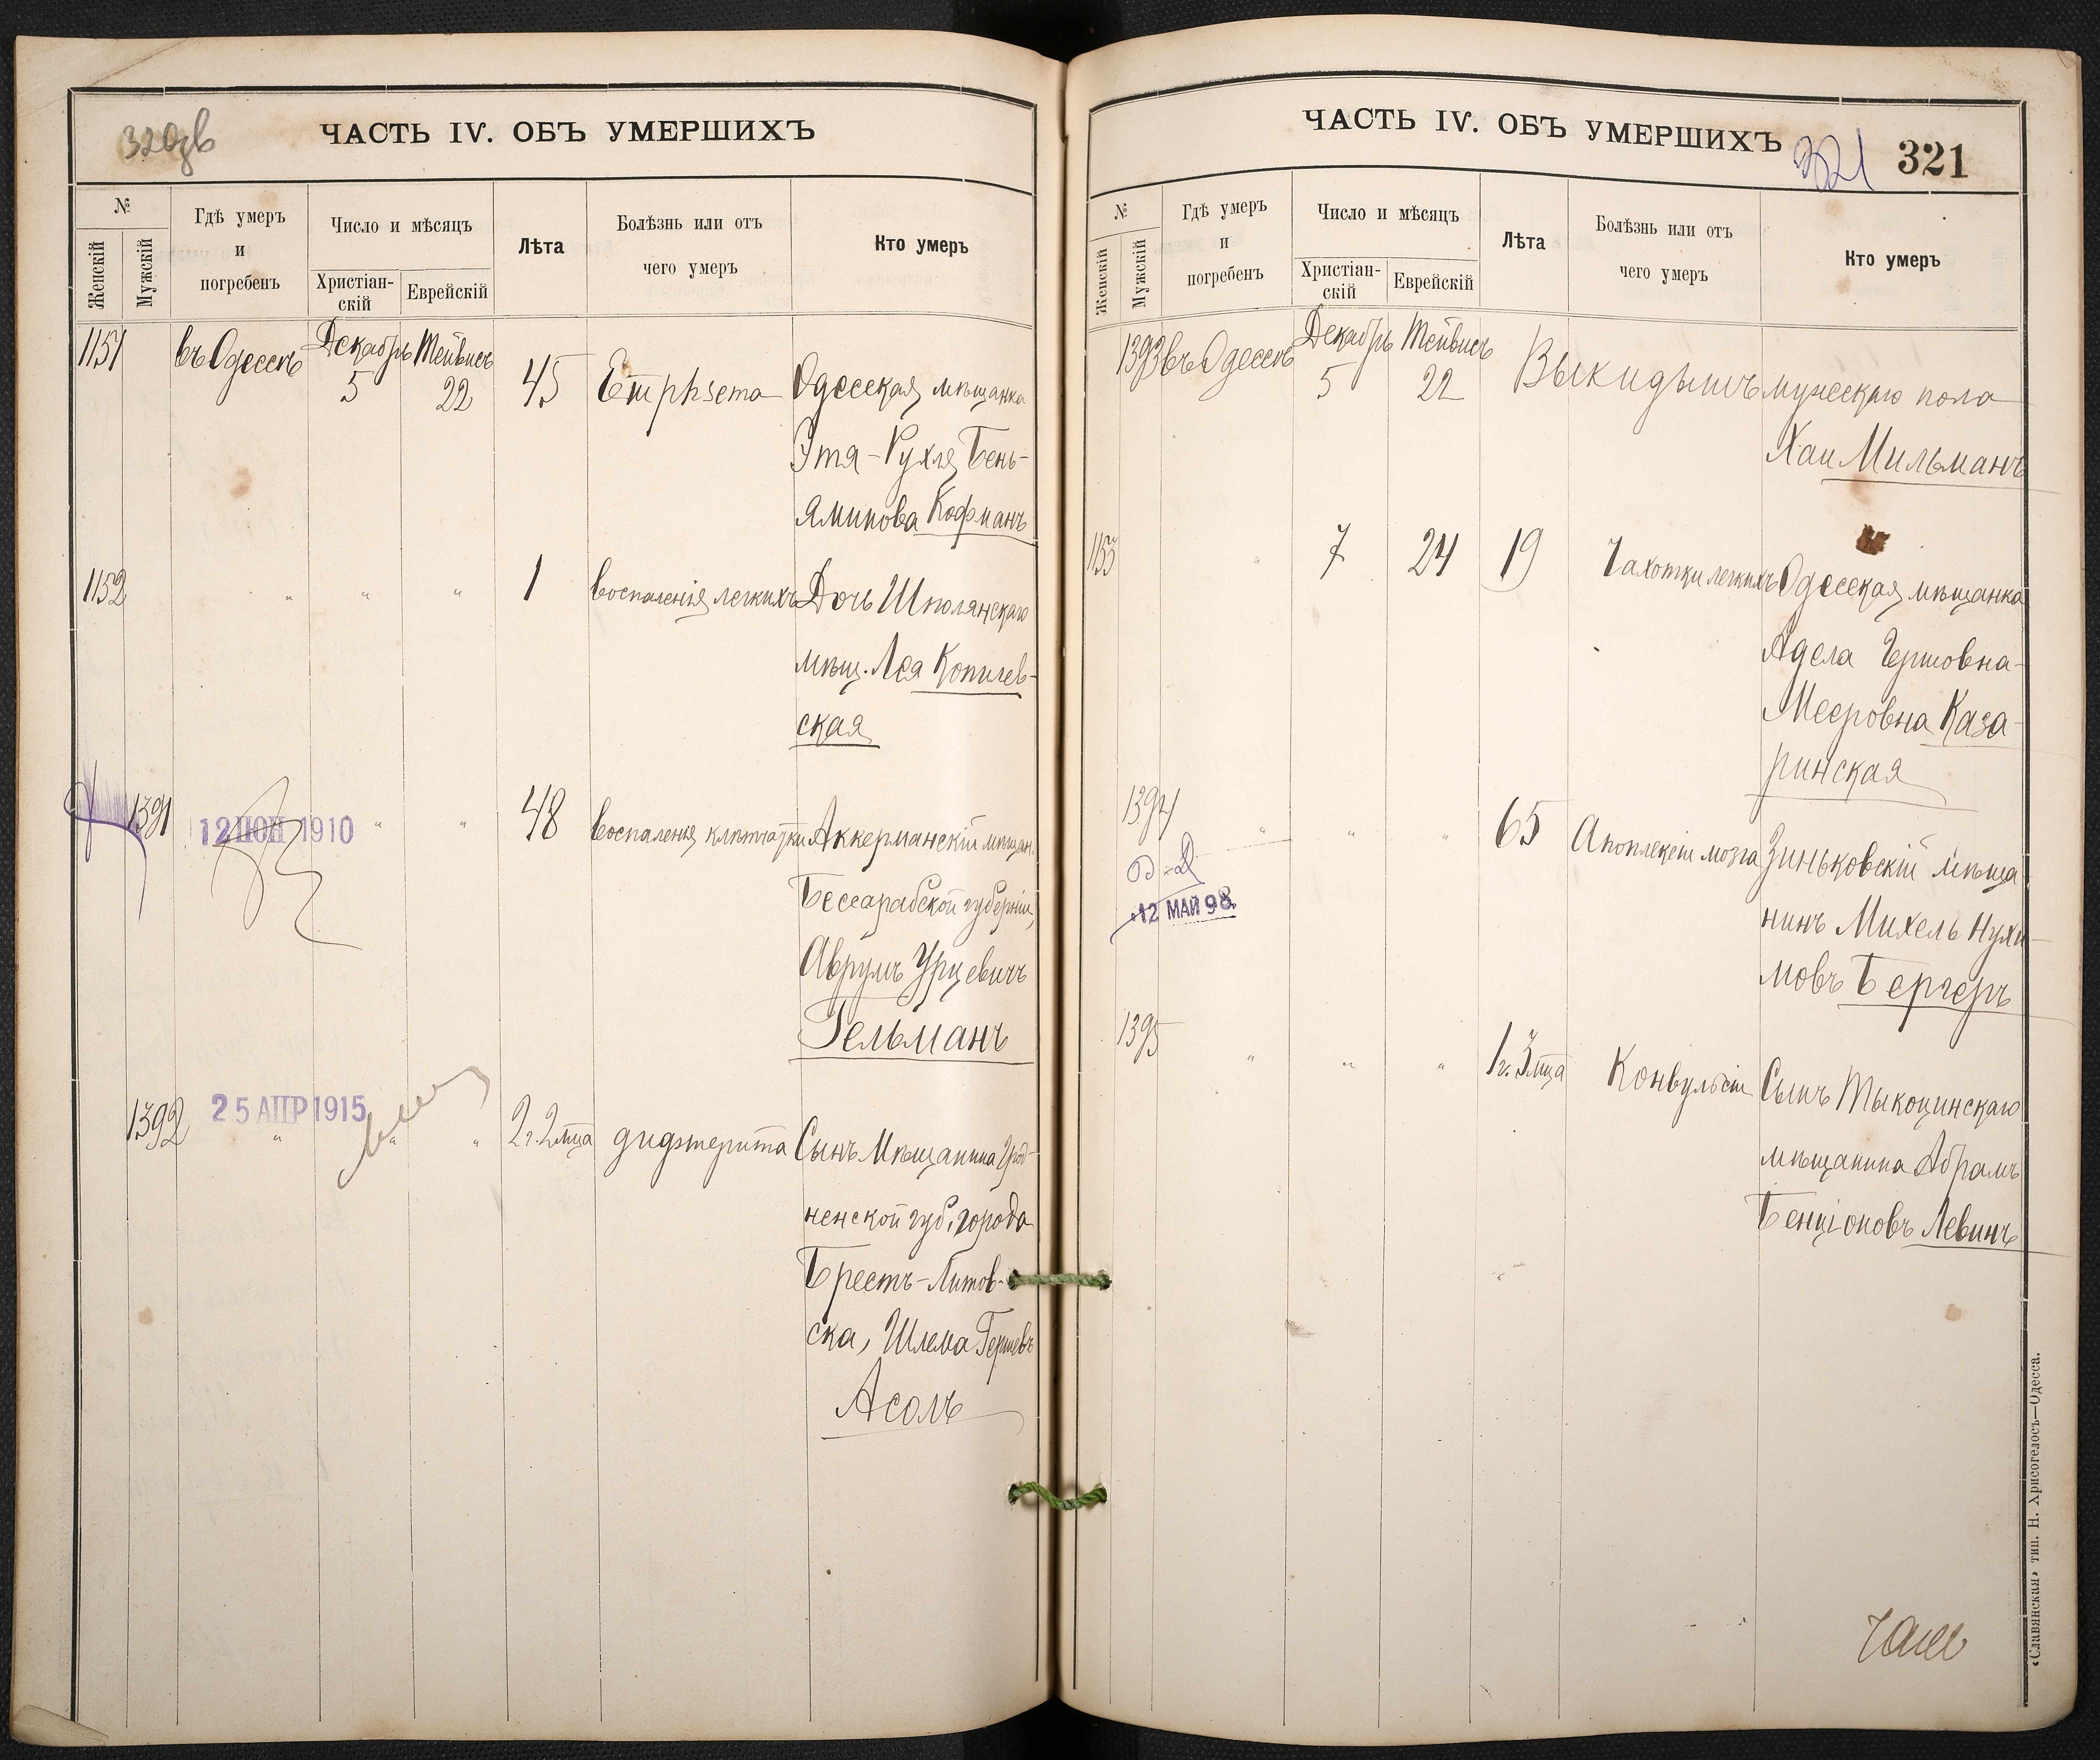 ЧАСТЬ IV. ОБЪ УМЕРШИХЪ
№
Женскій
Мужскій
Гдѣ умеръ
и
погребенъ
Число и мѣсяцъ
Христіан-
скій
Еврейскій
Лѣта
Болѣзнь или отъ
чего умеръ
Кто умеръ
1151 въ Одессѣ Декабрь 5 Тейвисъ 22 45 Emphsema Одесская мѣщанка
Этя-Рухля Бень-
яминова Кофманъ
1152 " " " 1 воспаленія легкихъ Дочь Шполянскаго
мѣщ. Лея Копилев-
ская
1391 12 ІЮН 1910 " " 48 воспаленія клѣтчатки Аккерманскій мѣщан.
Бессарабской губерніи,
Аврумъ Урцевичъ
Гельманъ
1392 25 АПР 1915 " " " 2 г. 2 мца дифтерита Сынъ Мѣщанина Грод-
ненской губ. города
Брестъ-Литов-
ска, Шлема Гершевъ
Асолъ
ЧАСТЬ IV. ОБЪ УМЕРШИХЪ
321 321
№
Женскій
Мужскій
Гдѣ умеръ
и
погребенъ
Число и мѣсяцъ
Христіан-
скій
Еврейскій
Лѣта
Болѣзнь или отъ
чего умеръ
Кто умеръ
1393 въ Одессѣ Декабрь 5 Тейвисъ 22 Выкидышъ мужескаго пола
Хаи Мильманъ
1153 " 7 24 19 Чахотки легкихъ Одесская мѣщанка
Адела Гершовна-
Мееровна Каза-
ринская
1394 " " " 65 Апоплексіи мозга Зиньковскій мѣща-
нинъ Михель Нухи-
мовъ Бергеръ
12 МАЙ 98
1395 " " " 1 г. 3 мца Конвульсіи Сынъ Тыкоцинскаго
мѣщанина Абрамъ
Бенціоновъ Левинъ
«Славянская» тип. Н. Хрисогелосъ—Одесса.